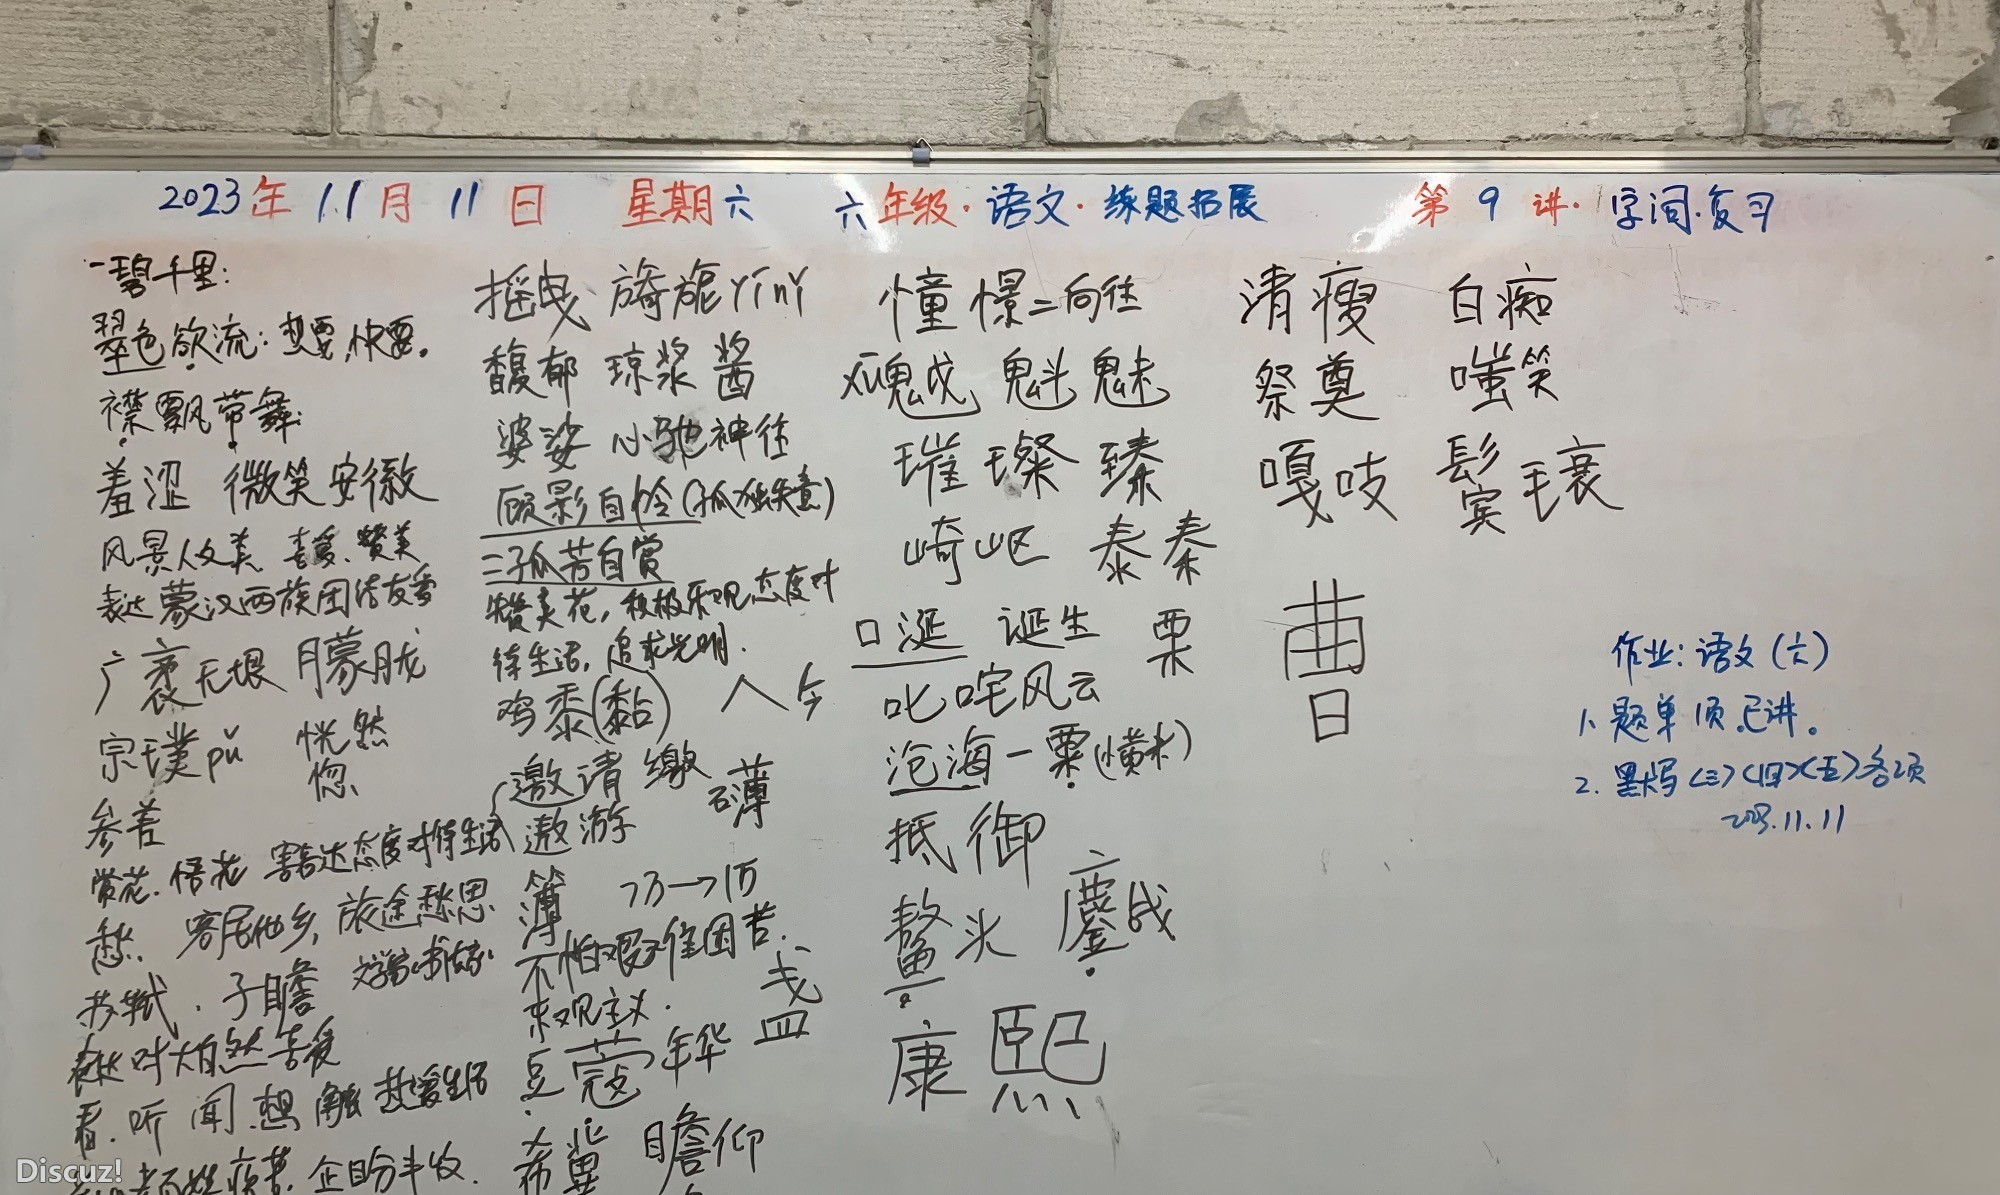 2023年11月11日 星期六 六年级·语文·练题拓展 第9讲·字词·复习
一碧千里:
翠色欲流:想要,快要。
襟飘带舞
羞涩 微笑 安徽
风景人文美 喜爱、赞美
表达蒙汉两族团结友爱
广袤无垠 朦胧
宗璞pǔ 恍然
惚
参差
赏花、悟花 表达态度对待生活
愁、客居他乡,旅途愁思
苏轼、子瞻 文学家书法家
表达对大自然喜爱
看、听 闻、想 触 热爱生活
百姓疾苦、企盼丰收
摇曳 旖旎yǐnǐ
馥郁 琼浆 酱
婆娑 心驰神往
顾影自怜(孤独失意)
=孤芳自赏
赞美花,积极乐观态度对
待生活,追求光明.
鸡黍(黏) 人今
邀请 缴 礴
遨游
簿 万→万
不怕艰难困苦.
乐观主义. 戋
豆蔻年华 皿
希冀 瞻仰
憧憬=向往
巍峨 魁 魅
璀璨 臻
崎岖 泰秦
口涎 诞生 栗
叱咤风云
沧海一粟(横木)
抵御
鳌头 鏖战
康熙
清瘦 白痴
祭奠 嗤笑
嘎吱 鬓毛衰
曲
日
作业:语文(六)
1、题单1页已讲。
2.默写<三><四><五>各1页
2023.11.11
Discuz!